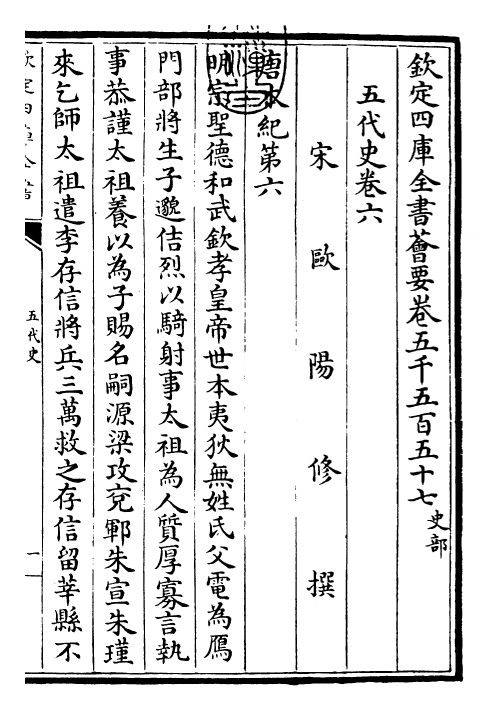 欽定四庫全書薈要卷五千五百五十七 史部
五代史卷六
宋 歐陽修 撰
唐本紀第六
明宗聖德和武欽孝皇帝世本夷狄無姓氏父電為鴈
門部將生子邈佶烈以騎射事太祖為人質厚寡言執
事恭謹太祖養以為子賜名嗣源梁攻兖鄆朱宣朱瑾
來乞師太祖遣李存信將兵三萬救之存信留莘縣不
欽定四庫全書
五代史
一